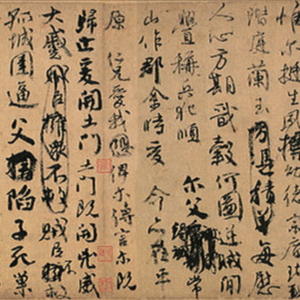 挺生夙標幼德宗廟瑚
階庭蘭玉方憑積善每慰
人心方期戩穀何圖逆賊間
釁稱兵犯順爾父竭誠常
山作郡余時受命亦在平
原仁兄愛我俾爾傳言爾既
歸止爰開土門土門既開凶威
大蹙賊臣擁衆不救賊臣不救
孤城圍逼父陷子死巢